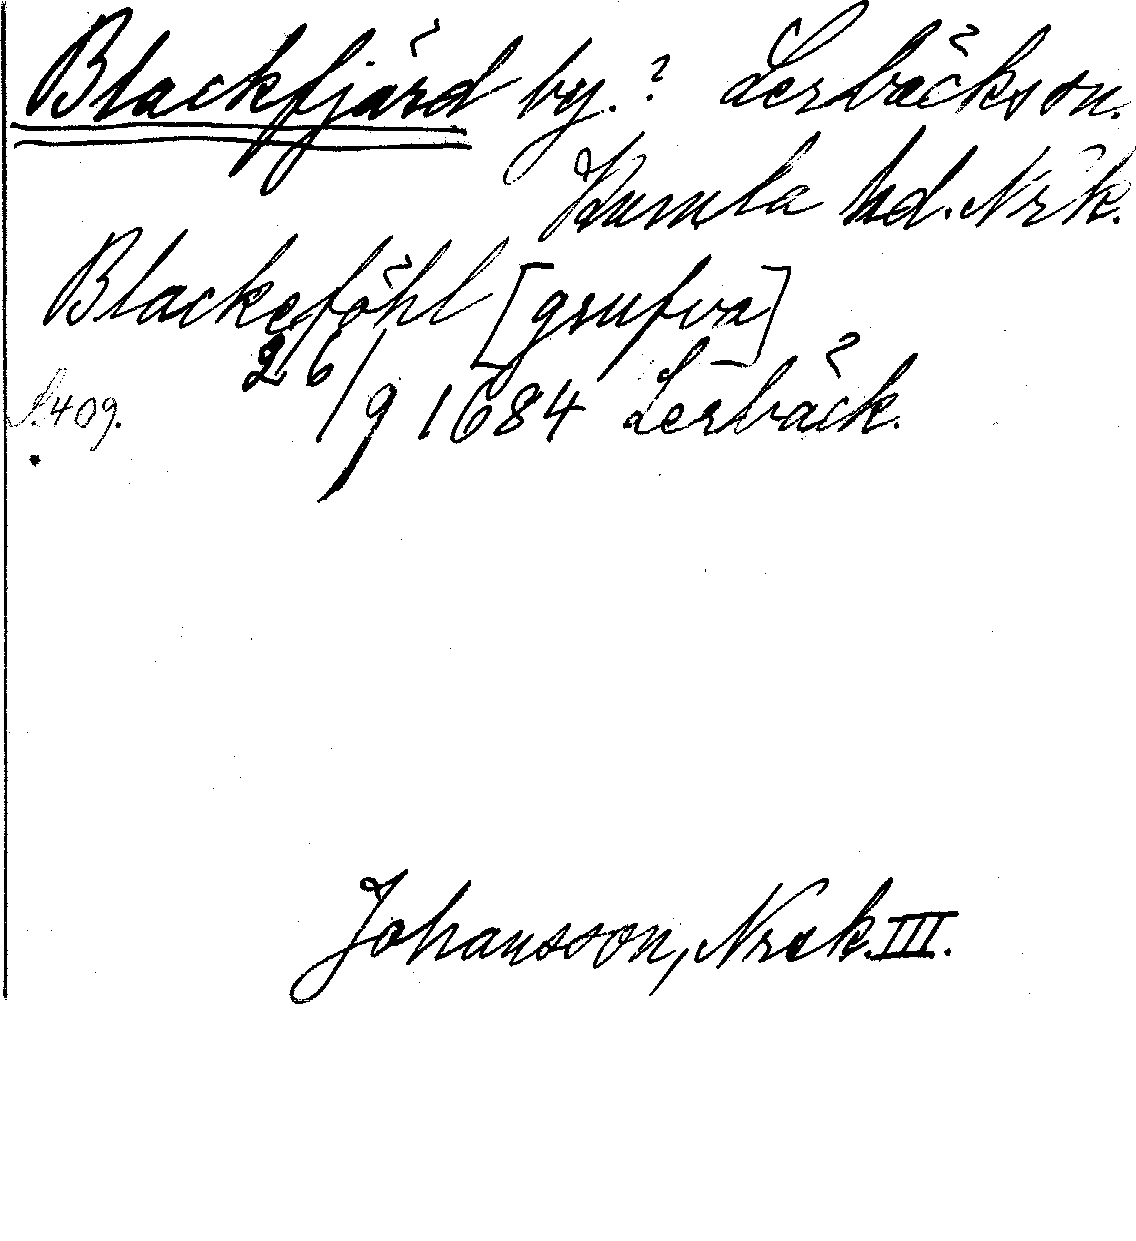 Blackfjärd by.? Lerbäcks sn.
Kumla hd. Nrk.
Blackeföhl [grufva]
26/9 1684 Lerbäck.
S. 409.
Johansson, Nrk. III.